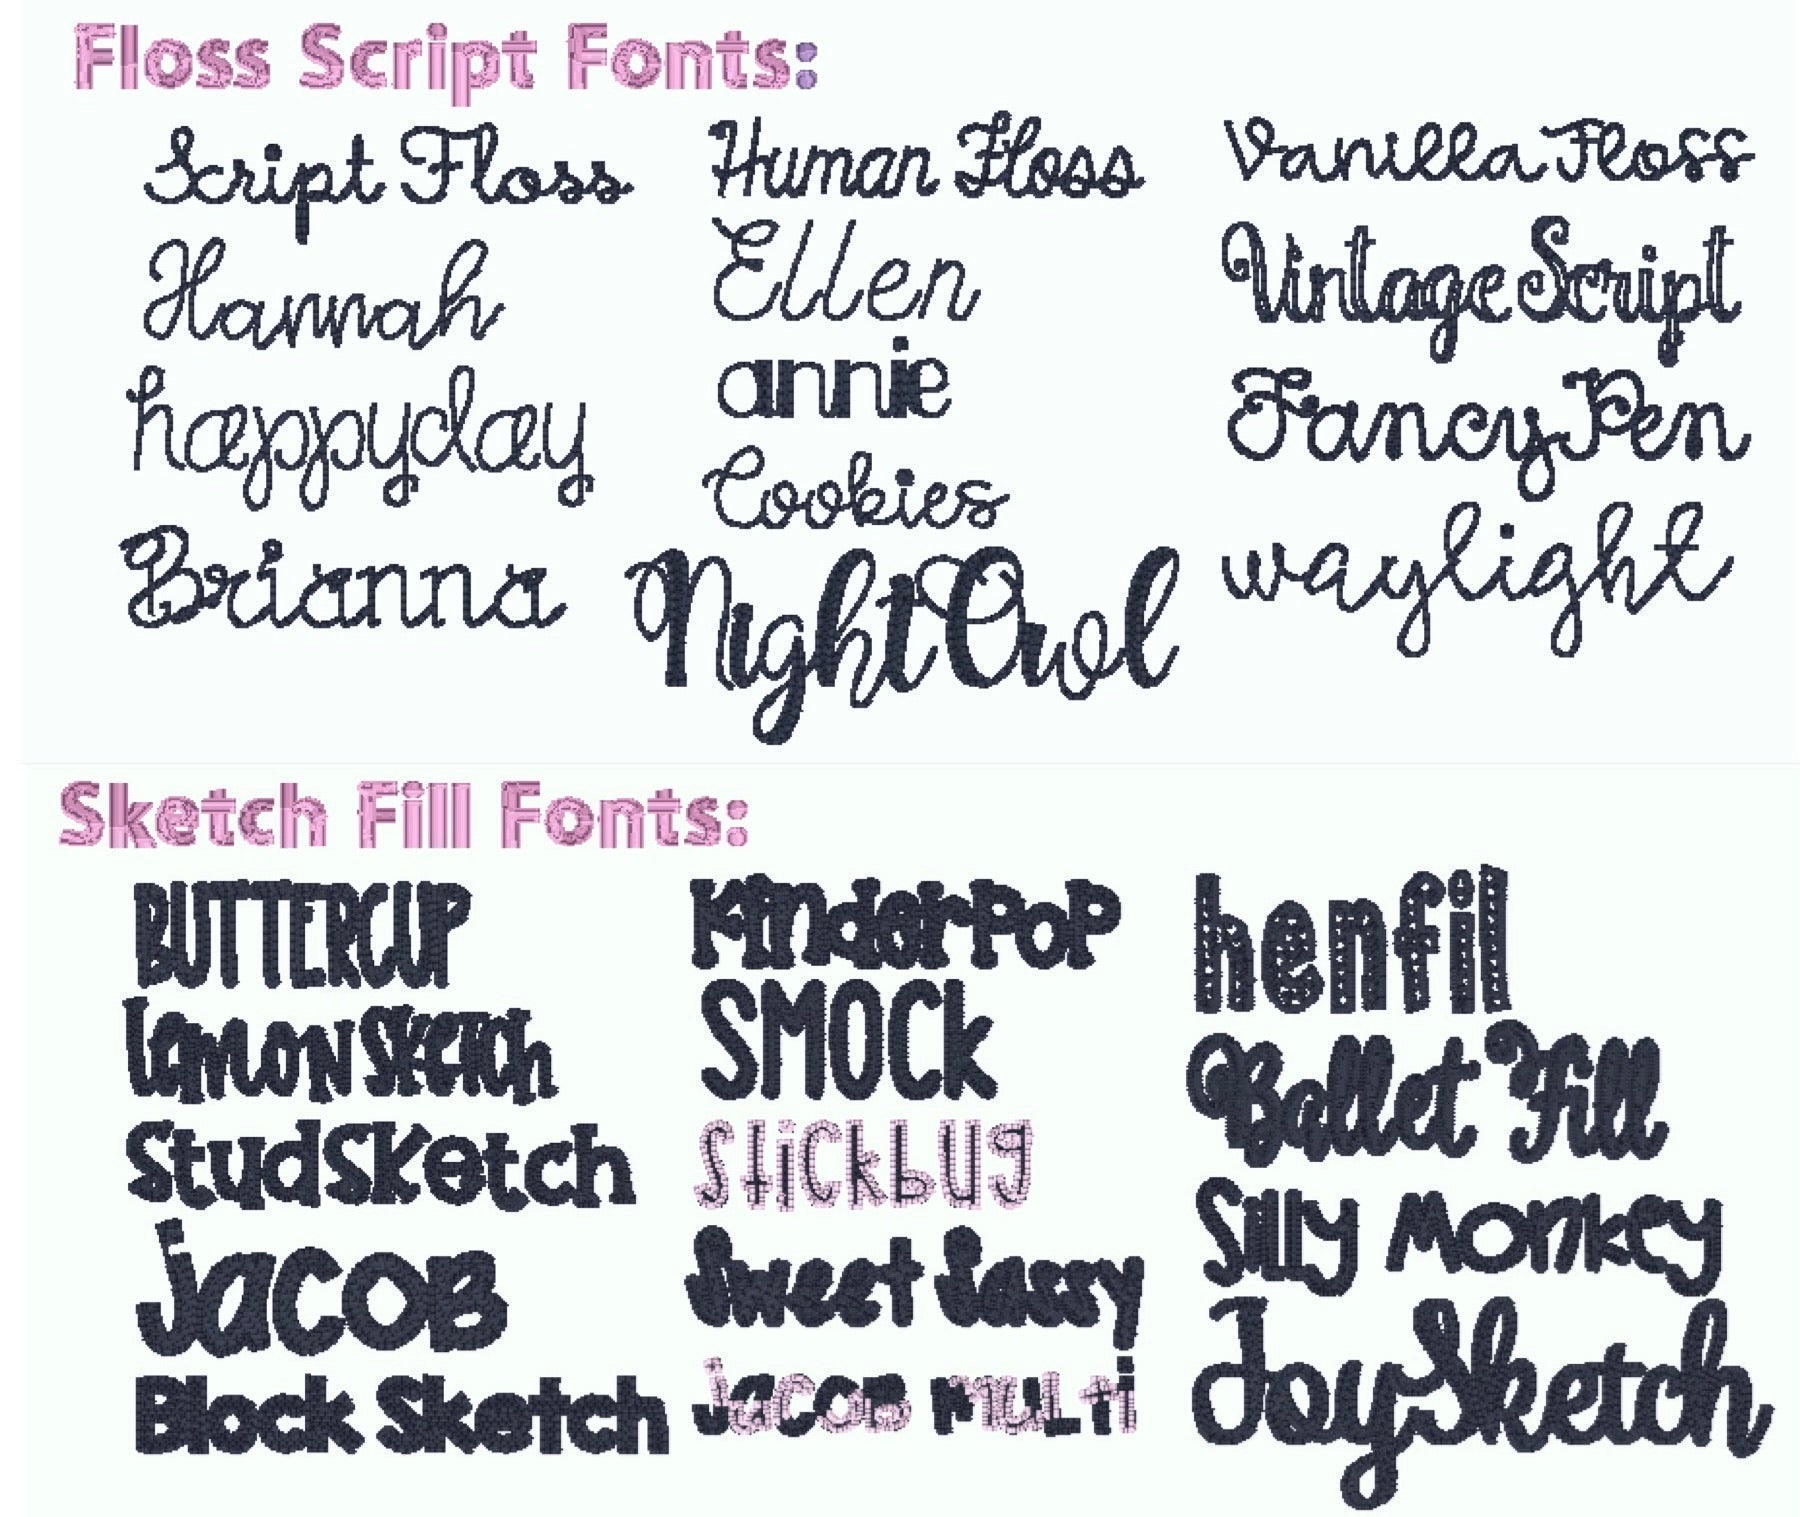 Floss Script Fonts:
Script Floss
Hannah
happyday
Brianna
Human Floss
Ellen
annie
Cookies
NightOwl
Vanilla Floss
Vintage Script
FancyPen
waylight
Sketch Fill Fonts:
BUTTERCUP
LemonSketch
StudSketch
Jacob
Block Sketch
KinderPoP
SMOCk
Stickbug
Sweet Sassy
Jacob Multi
henfil
Ballet Fill
Silly Monkey
JoySketch